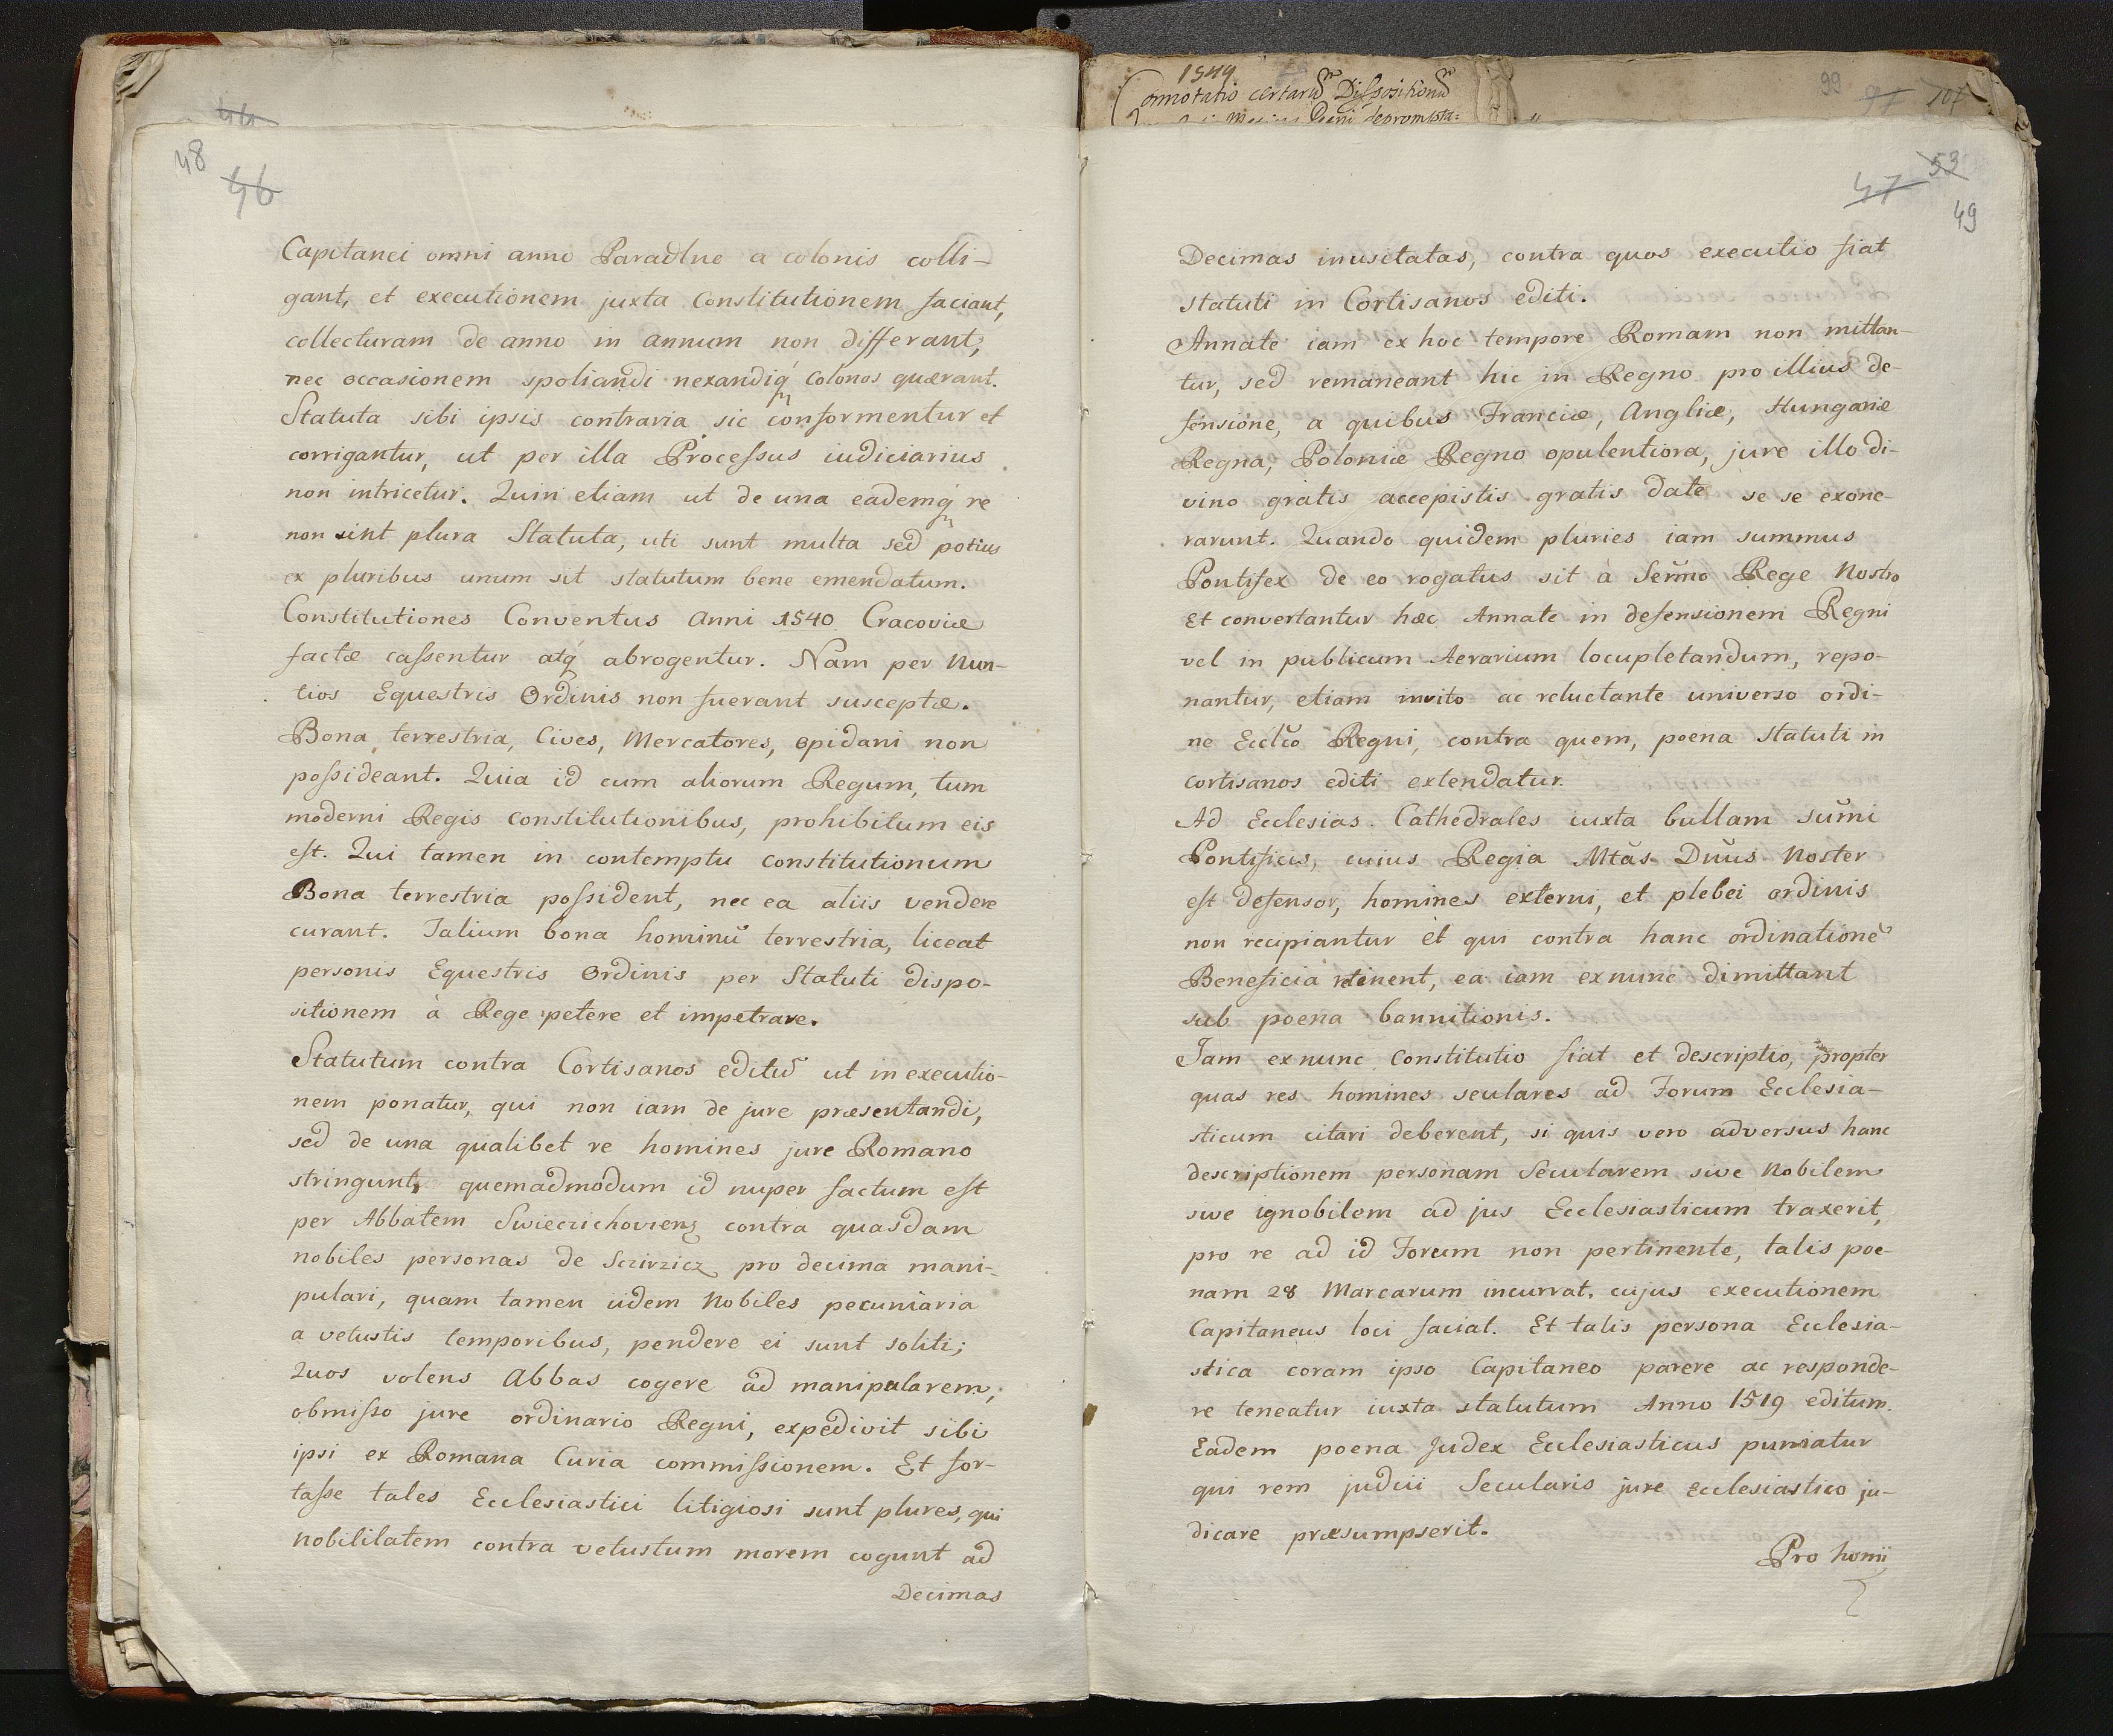 44
48
46
Capitanei omni anno Paradlne a colonis colli-
gant, et executionem juxta Constitutionem faciant,
collecturam de anno in annum non differant,
nec occasionem spoliandi nexandiq́ Colonos quærant.
Statuta sibi ipsis contraria sic conformentur et
corrigantur, ut per illa Processus iudiciarius
non intricetur. Quin etiam ut de una eademq́ re
non sint plura Statuta, uti sunt multa sed potius
ex pluribus unum sit statutum bene emendatum.
Constitutiones Conventus Anni 1540 Cracoviæ
factæ cassentur atq́ abrogentur. Nam per Nun-
tios Equestris Ordinis non fuerant susceptæ.
Bona terrestria, Cives, Mercatores, opidani non
possideant. Quia id cum aliorum Regum, tum
moderni Regis Constitutionibus, prohibitum eis
est. Qui tamen in contemptu Constitutionum
Bona terrestria possident, nec ea aliis vendere
curant. Talium bona hominũ terrestria, liceat
personis Equestris Ordinis per Statuti dispo-
sitionem à Rege petere et impetrare.
Statutum contra Cortisanos editũ ut in executio-
nem ponatur, qui non iam de jure præsentandi,
sed de una qualibet re homines jure Romano
stringunt, quemadmodum id nuper factum est
per Abbatem contra quasdam
nobiles personas de pro decima mani-
pulari, quam tamen iidem Nobiles pecuniaria
a vetustis temporibus, pendere ei sunt soliti;
Quos volens Abbas cogere ad manipularem,
obmisso jure ordinario Regni, expedivit sibi
ipsi ex Romana Curia commissionem. Et for-
tasse tales Ecclesiastici litigiosi sunt plures, qui
Nobilitatem contra vetustum morem cogunt ad
Decimas
1549
Connotatio certarũ Dispositionũ
deprompta:
99 97 107
53
47
49
Decimas inusitatas, contra quos executio fiat
statuti in Cortisanos editi.
Annate iam ex hoc tempore Romam non mittan-
tur, sed remaneant hic in Regno pro illius de-
fensione, a quibus Franciæ, Angliæ, Hungariæ
Regna, Poloniæ Regno opulentiora, jure illo di-
vino gratis accepistis gratis date se se exone-
rarunt. Quando quidem pluries iam summus
Pontifex de eo rogatus sit à Serm̃o Rege Nostro
Et convertantur hæc Annate in defensionem Regni
vel in publicum Aerarium locupletandum, repo-
nantur, etiam invito ac reluctante universo ordi-
ne Ecclc̃o Regni, contra quem, poena Statuti in
cortisanos editi extendatur.
Ad Ecclesias Cathedrales iuxta bullam sum̃i
Pontificis, cuius Regia Mtãs Dnũs Noster
est defensor, homines externi, et plebei ordinis
non recipiantur et qui contra hanc ordinationẽ
Beneficia retinent, ea iam exnunc dimittant
sub poena bannitionis.
Iam exnunc Constitutio fiat et descriptio, propter
quas res homines seculares ad Forum Ecclesia-
sticum citari deberent, si quis vero adversus hanc
descriptionem personam Secularem sive Nobilem
sive ignobilem ad jus Ecclesiasticum traxerit,
pro re ad id Forum non pertinente, talis poe-
nam 28 Marcarum incurrat, cujus executionem
Capitaneus loci faciat. Et talis persona Ecclesia-
stica coram ipso Capitaneo parere ac responde-
re teneatur iuxta statutum Anno 1519 editum.
Eadem poena Judex Ecclesiasticus puniatur
qui rem judicii Secularis jure Ecclesiastico ju-
dicare præsumpserit.
Pro